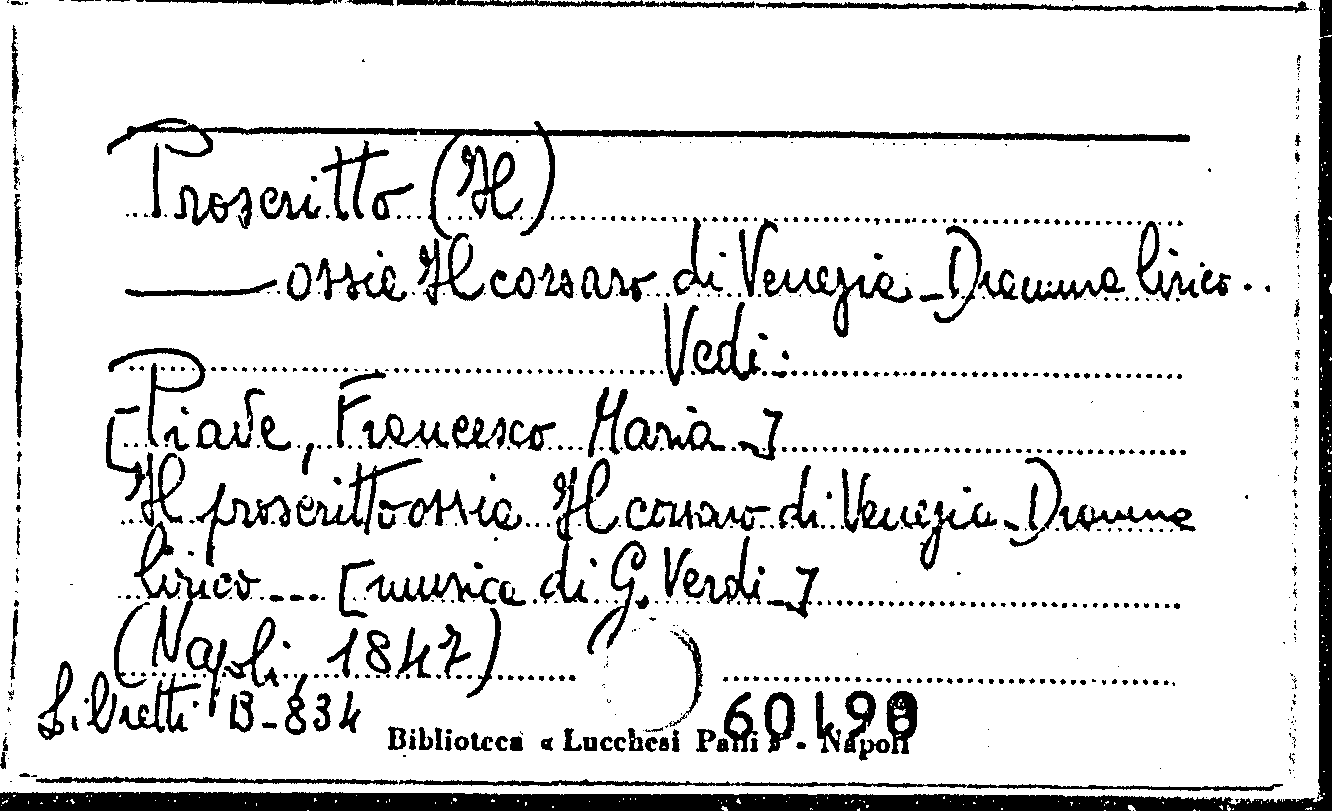 Proscritto (Il)
——— ossia Il corsaro di Venezia - Dramma lirico...
Vedi:
[Piave, Francesco Maria -]
Il proscritto ossia Il corsaro di Venezia - Dramma
lirico --- [musica di G. Verdi -]
(Napoli, 1847)
Libretti B-834
Biblioteca « Lucchesi Palli » - Napoli